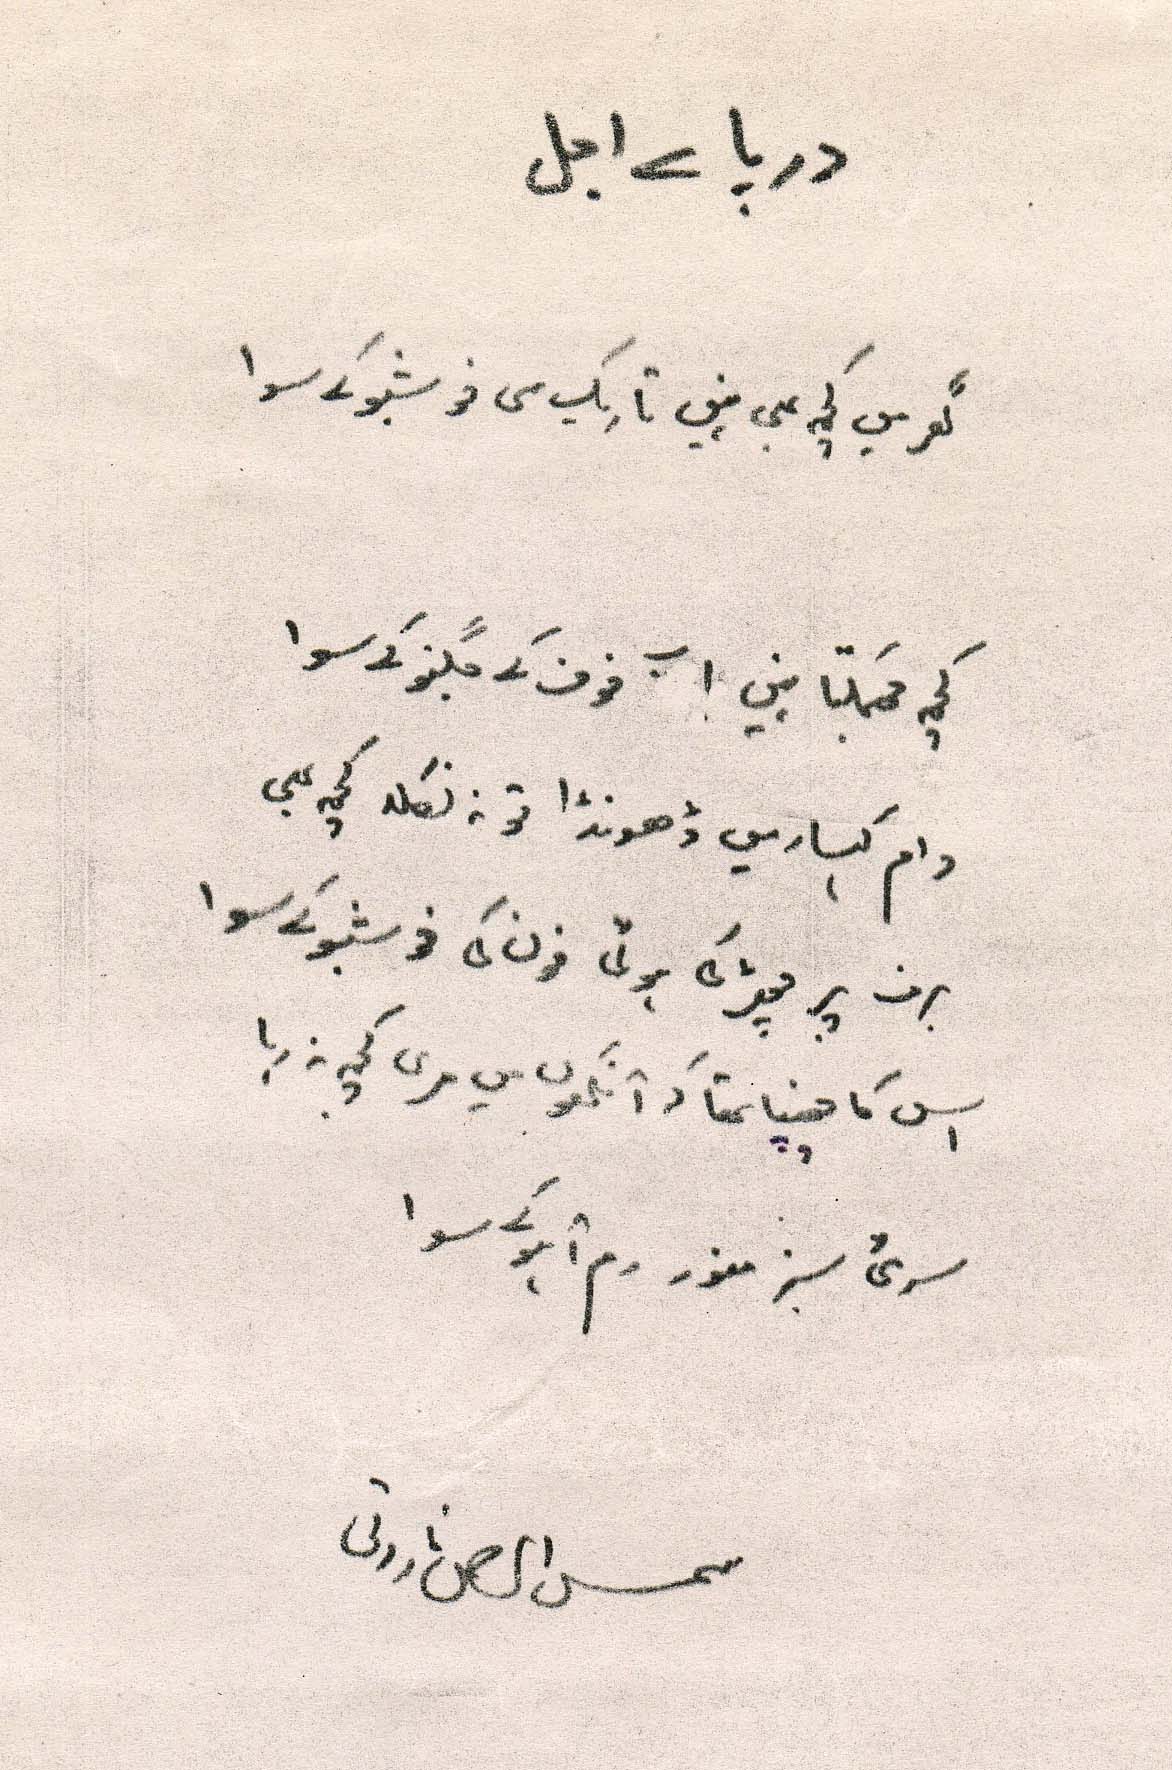 دریائے اجل
گھر میں کچھ بھی نہیں تاریک سی خوشبو کے سوا
کچھ چمکتا نہیں اب خوف کے جگنو کے سوا
دام کہسار میں ڈھونڈا تو نہ نکلا کچھ بھی
برف پر چھڑکی ہوئی خون کی خوشبو کے سوا
اس کا چھپنا تھا کہ آنکھوں میں مری کچھ نہ رہا
سرمئی سبز رم آہو کے سوا
شمس الرحمن فاروقی